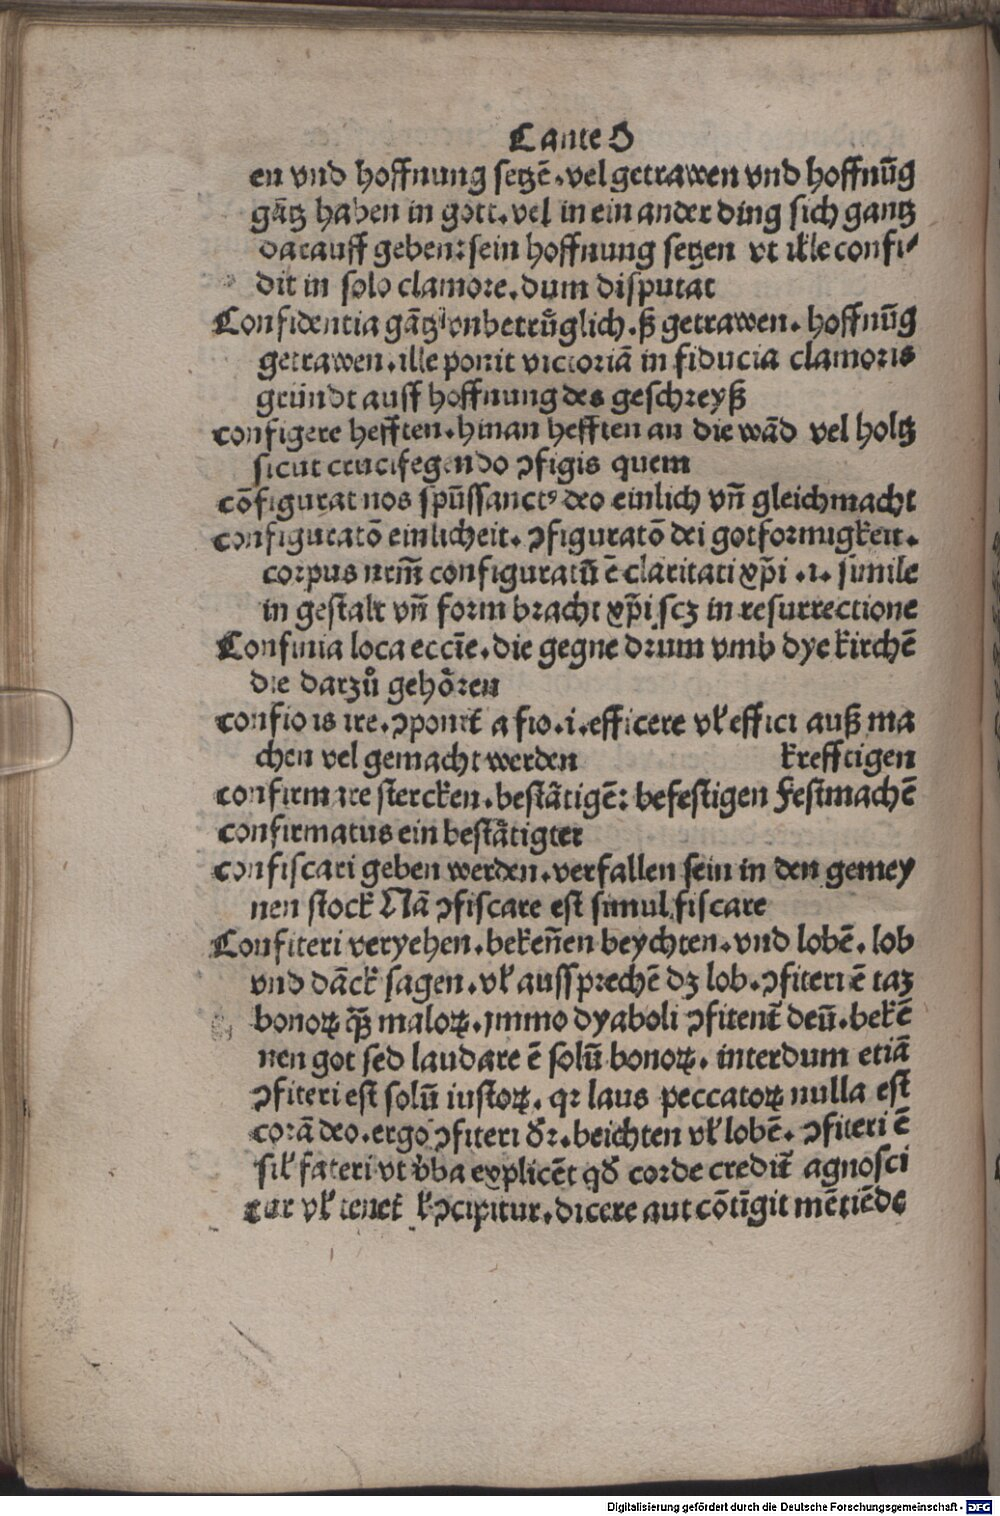 C ante O
en vnd hoffnung setzē. vel getrawen vnd hoffnūg
gātz haben in gott. vel in ein ander ding sich gantz
darauff geben: sein hoffnung setzen vt ille confi⸗
dit in solo clamore. dum disputat
Confidentia gātz vnbetrůglich. ß getrawen. hoffnūg
getrawen. ille ponit victoriā in fiducia clamoris
gründt auff hoffnung des geschreyß
configere hefften. hinan hefften an die wād vel holtz
sicut crucifegendo ꝯfigis quem
cōfigurat nos spūssanctꝰ deo einlich vn̄ gleichmacht
configuratō einlicheit. ꝯfiguratō dei gotformigkeit.
corpus nrm̄ configuratū ē claritati xp̄i .i. simile
in gestalt vn̄ form bracht xp̄i scꝫ in resurrectione
Confinia loca eccīe. die gegne drum vmb dye kirchē
die darzů gehôren
confio is ire. ꝯponit̄ a fio .i. efficere vł effici auß ma
chen vel gemacht werden krefftigen
confirmare stercken. bestâtigē: befestigen festmachē
confirmatus ein bestâtigter
confiscari geben werden. verfallen sein in den gemey
nen stock Nā ꝯfiscare est simul fiscare
Confiteri veryehen. beken̄en beychten. vnd lobē. lob
vnd dāck sagen. vł aussprechē dꝫ lob. ꝯfiteri ē taꝫ
bonoꝝ q̄ꝫ maloꝝ. ymmo dyaboli ꝯfitent̄ deū. bekē
nen got sed laudare ē solū bonoꝝ. interdum etiā
ꝯfiteri est solū iustoꝝ. qꝛ laus peccatoꝝ nulla est
corā deo. ergo ꝯfiteri dr̄. beichten vł lobē. ꝯfiteri ē
sił fateri vt v̄ba explicēt qd̄ corde credit̄ agnosci
tur vł tenet̄ ł ꝑcipitur. dicere aut cōtīgit mētiēdo
Digitalisierung gefördert durch die Deutsche Forschungsgemeinschaft - DFG